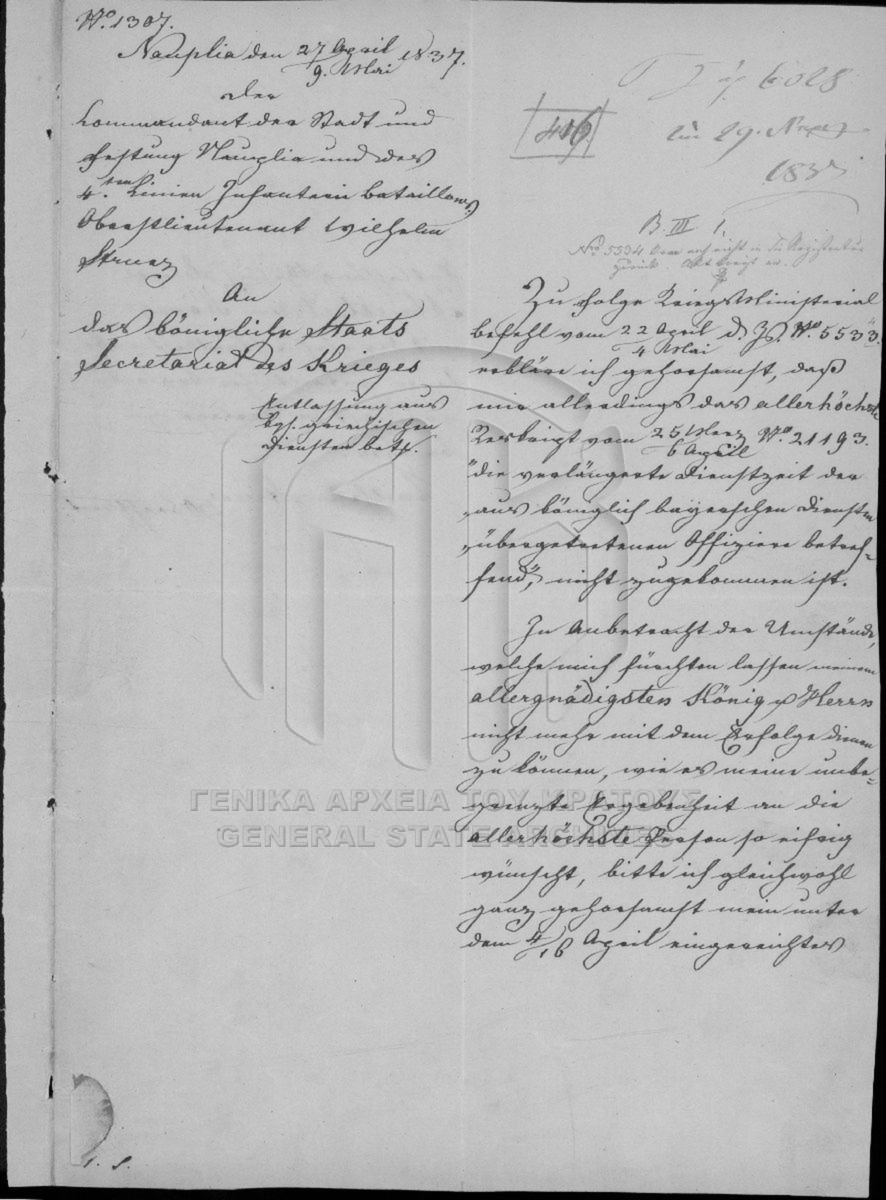 No. 1307.
Nauplia den 27 April / 9. Mai 1837.
Der
Commandant der Stadt und
Festung Nauplia und des
4.ten Linien Infanterie Bataillons,
Oberstlieutenant Wilhelm
An
das königliche Staats
Secretariat des Krieges
Entlassung aus
kgl. griechischen
Diensten betf.
6028
416
29.
183
B. III 1.
No. 5334
zurück.
Zu Folge KriegsMinisterial
befehl vom 22 April / 4 Mai d. Js. No. 5533.
erkläre ich gehorsamst, daß
mir allerdings das allerhöchste
Reskript vom 25 Merz / 6 April No. 21193.
"die verlängerte Dienstzeit der
"aus königlich bayerschen Diensten
"übergetretenen Offiziere betref-
fend", nicht zugekommen ist.
In Anbetracht der Umstände,
welche mich fürchten lassen meinem
allergnädigsten König u Herrn
nicht mehr mit dem Erfolge dienen
zu können, wie es meine unbe-
grenzte Ergebenheit an die
allerhöchste Person so eifrig
wünscht, bitte ich gleichwohl
ganz gehorsamst mein unter
dem 4/16 April eingereichtes
ΓΕΝΙΚΑ ΑΡΧΕΙΑ ΤΟΥ ΚΡΑΤΟΥΣ
GENERAL STATE ARCHIVES